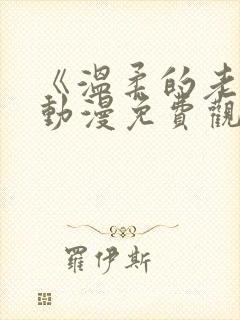 《溫柔的老
動漫免費觀
羅伊斯